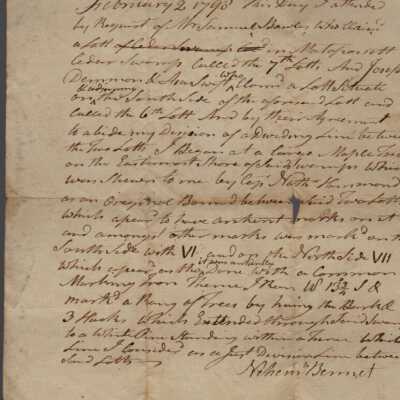 February 2 1793 This Day I attended
by Request of Mr Samuel Bawley who Claims
a Lott of Ceder Swamp in Matepoisett
Ceder Swamp Called the 7th Lott, And Joseph
Demmon & Asa Swift who Claim a Lott
adjoyning on the South Side of the aforesaid Lott and
Called the 6th Lott And by their Agreement
to abide my Division of a Dividing Line between
the Two Lotts I Began at a Large Maple Tree
on the Eastermost Shore of said Swamps Which
was shewn to me by Capt Nathll Hammond
as an Oregional Bound between said Two Lotts
which apears to have antient marks on it
and amongst other marks was markd on the
South Side with VI and on the North Side VII
which apears to them
Done with a Common
Marking Iron Thence I Ran W 13½ S &
markd a Rang of Trees by hewing the Bark &
3 Hacks which Extended through said Swamp
to a White Pine Standing within a 
Line I Consider as a Just Division Line between
said Lotts
Nehemh Bennet